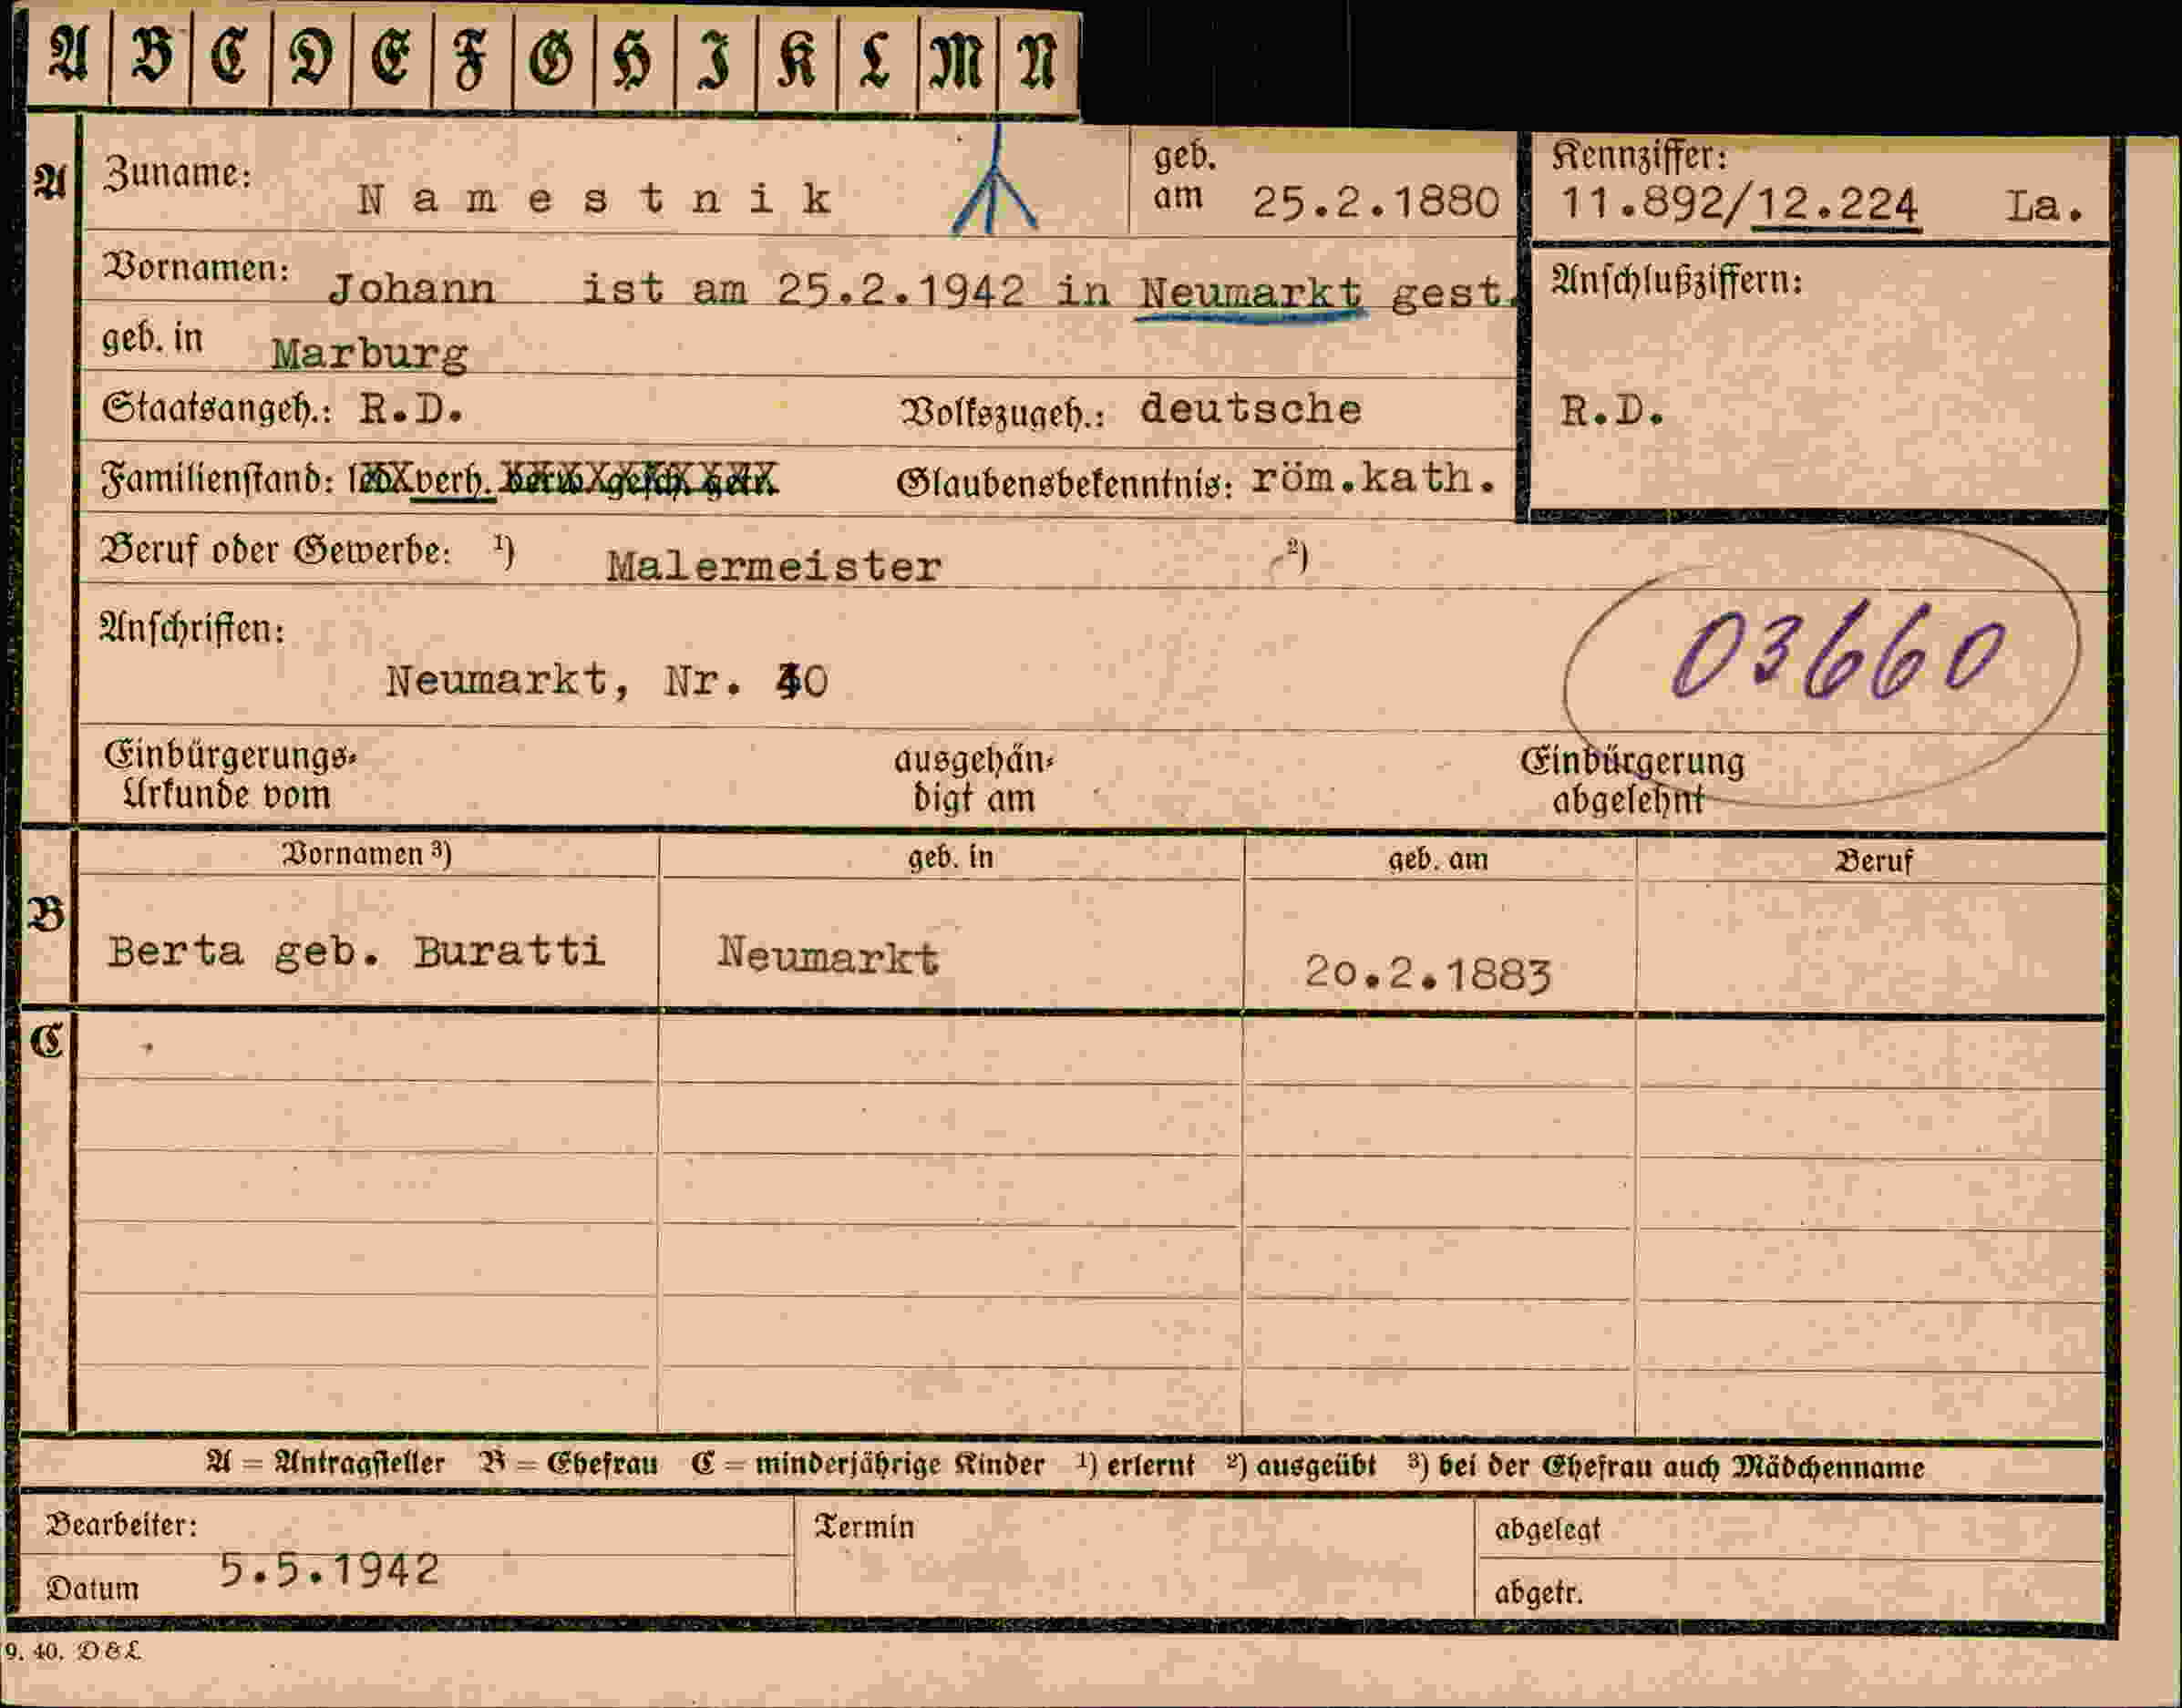 A B C D E F G H I K L M N
A Zuname: Namestnik geb. am 25.2.1880
Kennziffer: 11.892/12.224 La.
Vornamen: Johann ist am 25.2.1942 in Neumarkt gest.
Anschlußziffern:
geb. in Marburg
Staatsangeh.: R.D. Volkszugeh.: deutsche R.D.
Familienstand: verh. Glaubensbekenntnis: röm.kath.
Beruf oder Gewerbe: 1) Malermeister 2)
03660
Anschriften:
Neumarkt, Nr. 40
Einbürgerungs- Urkunde vom ausgehän- digt am Einbürgerung abgelehnt
Vornamen 3) geb. in geb. am Beruf
B Berta geb. Buratti Neumarkt 20.2.1883
C
A = Antragsteller B = Ehefrau C = minderjährige Kinder 1) erlernt 2) ausgeübt 3) bei der Ehefrau auch Mädchenname
Bearbeiter: Termin abgelegt
Datum 5.5.1942 abgetr.
9. 40. D & L